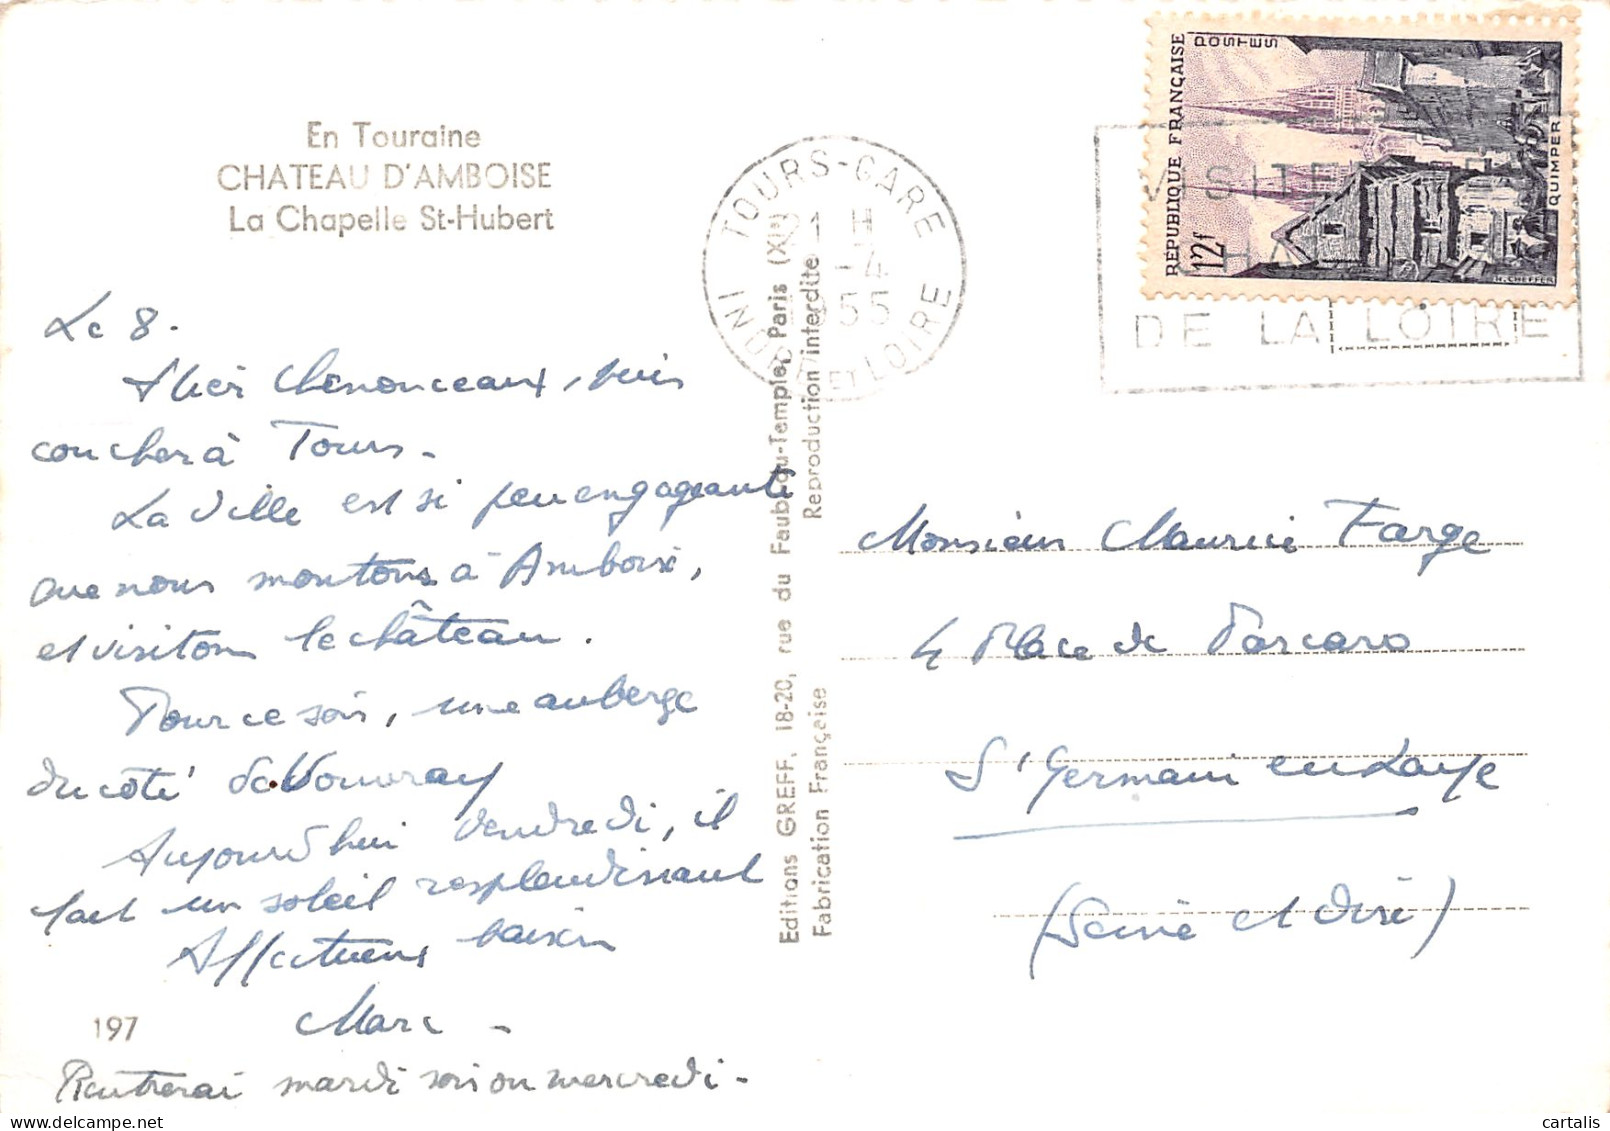 En Touraine
CHATEAU D'AMBOISE
La Chapelle St-Hubert
Le 8.
Hier Chenonceaux, puis
coucher à Tours.
La ville est si peu engageante
que nous montons à Amboise,
et visitons le château.
Pour ce soir, une auberge
du côté de Vouvray
Aujourd'hui vendredi, il
fait un soleil resplendissant
Affectueux baisers
Marc -
197
Rentrerai mardi soir ou mercredi -
Editions GREFF, 18-20, rue du Faubourg-du-Temple, Paris (XIe)
Reproduction interdite
Fabrication Française
TOURS-GARE
1 H
-4
55
INDRE ET LOIRE
RÉPUBLIQUE FRANÇAISE
POSTES
12f
QUIMPER
H. CHEFFER
VISITE
CH
DE LA LOIRE
Monsieur Maurice Farge
4 Place de
St Germain en Laye
(Seine et Oise)
cartalis
www.delcampe.net